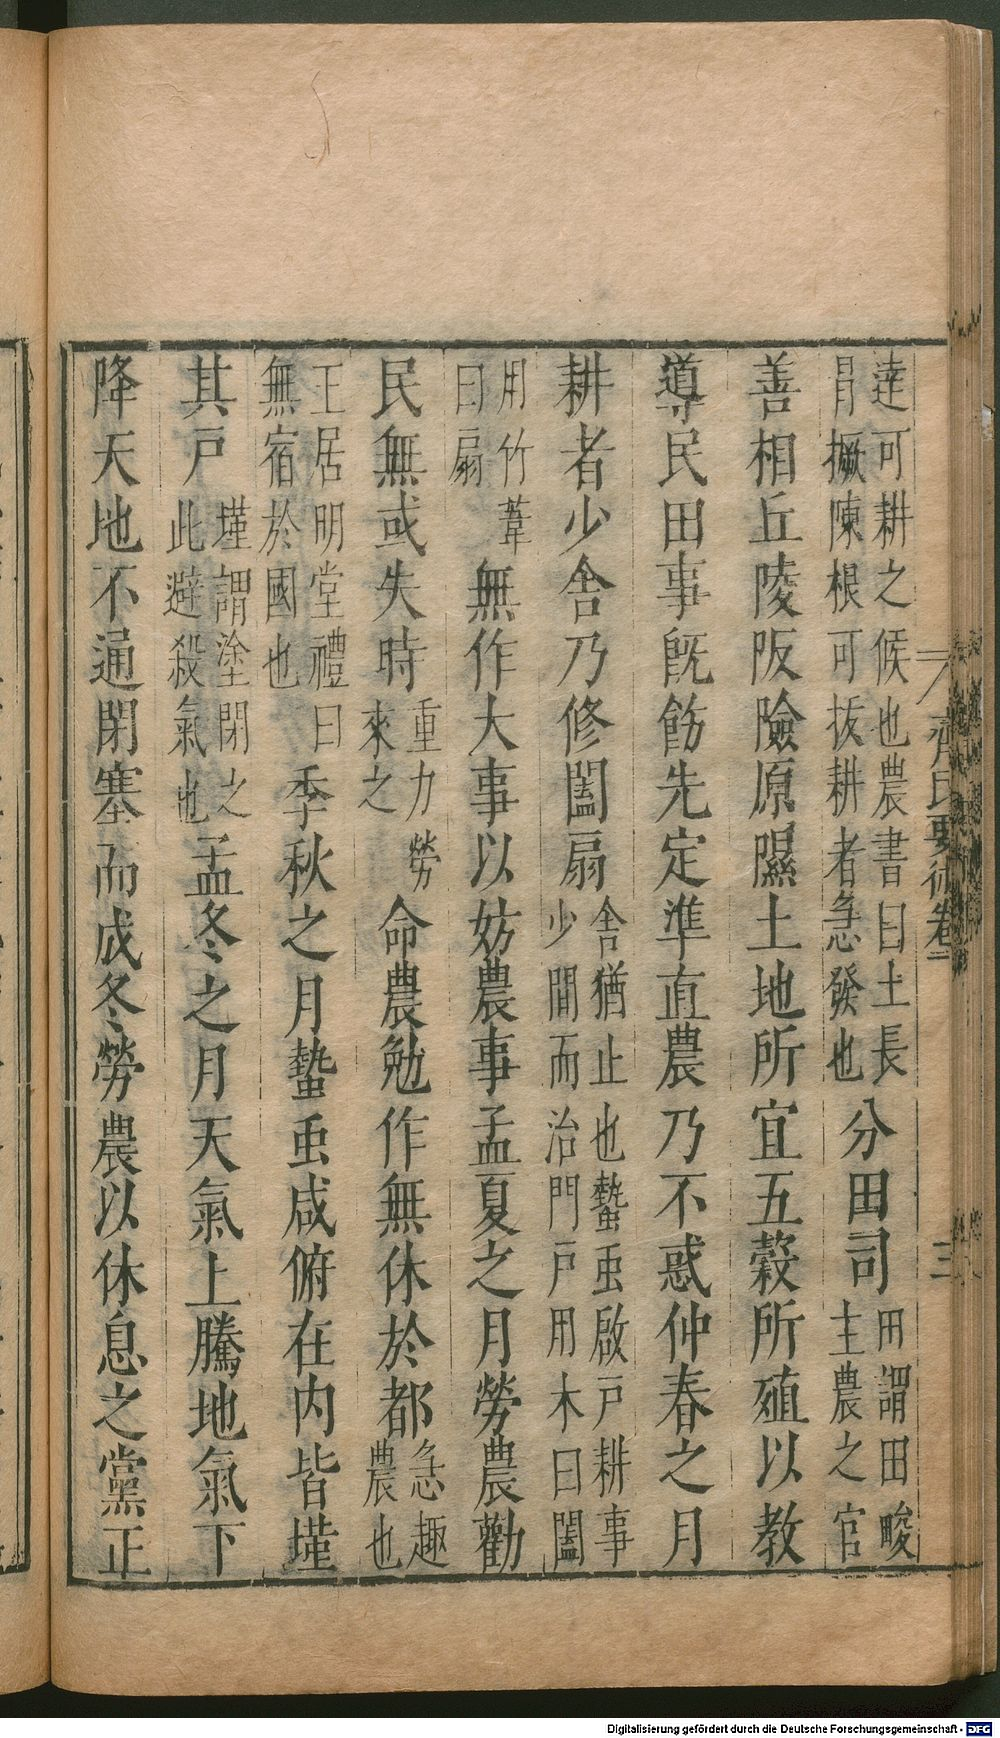 達可耕之候也農書曰土長
冐橛陳根可拔耕者急發也
分田司
田謂田畯
主農之官
善相丘陵阪險原隰土地所宜五穀所殖以教
導民田事旣飭先定準直農乃不惑仲春之月
耕者少舍乃修闔扇
舍猶止也蟄虫啟戶耕事
少間而治門戶用木曰闔
用竹葦
曰扇
無作大事以妨農事孟夏之月勞農勸
民無或失時
重力勞
來之
命農勉作無休於都
急趣
農也
王居明堂禮曰
無宿於國也
季秋之月蟄虫咸俯在内皆墐
其戶
墐謂塗閉之
此避殺氣也
孟冬之月天氣上騰地氣下
降天地不通閉塞而成冬勞農以休息之黨正
齊民要術卷一
三
Digitalisierung gefördert durch die Deutsche Forschungsgemeinschaft - DFG